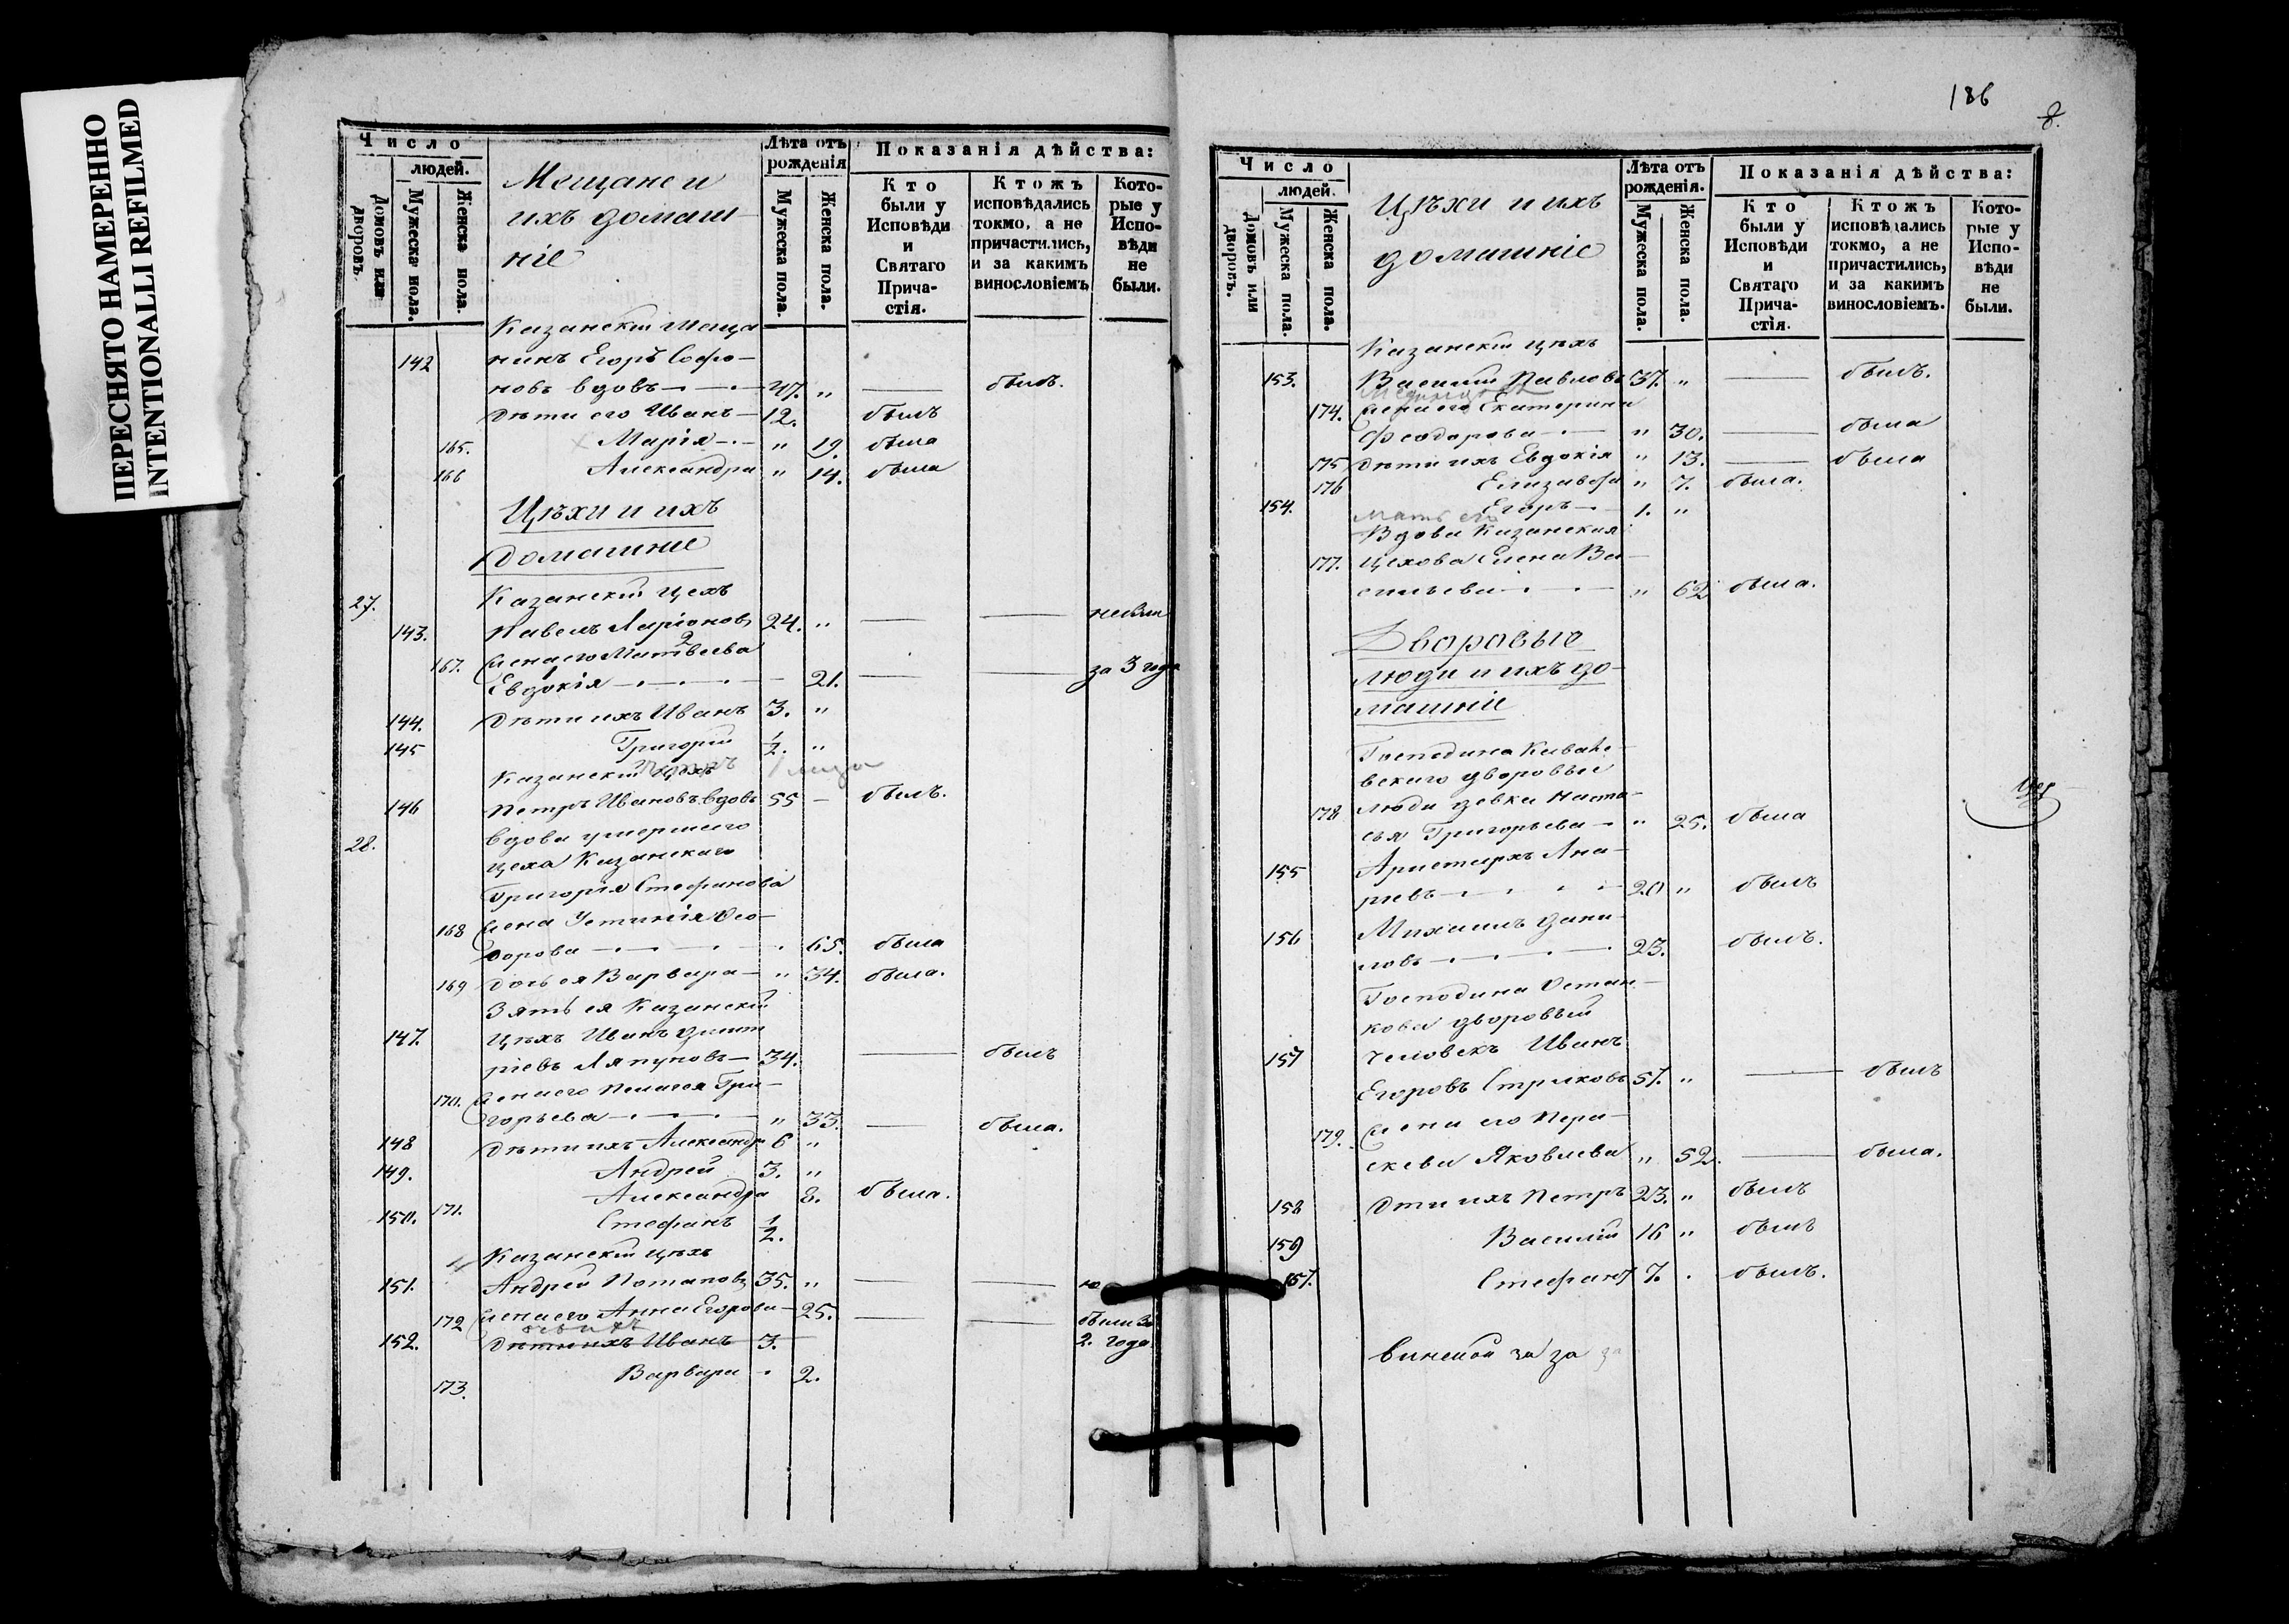 ПЕРЕСНЯТО НАМЕРЕННО
INTENTIONALLI REFILMED
Число
людей.
Домовъ или дворовъ.
Мужеска пола.
Женска пола.
Мещане и
ихъ домаш-
ніе
Лѣта отъ рожденія
Мужеска пола.
Женска пола.
Показанія дѣйства:
Кто были у Исповѣди и Святаго Прича-стія.
Ктожъ исповѣдались токмо, а не причастились, и за какимъ винословіемъ
Кото-рые у Испо-вѣди не были.
Казанскій Меща
142 нинъ Егоръ Софо-
новъ вдовъ 47. „ — былъ.
Дѣти его Иванъ 12. былъ
165. Марія „ 19. была
166 Александра „ 14. была
Цѣхи и ихъ
Домашніе
27. Казанскій цехъ
143. Павелъ Ларіоновъ 24. „ — —
167. Жена его Матвеева 2
Евдокія 1 21. — — за 3 года
144. Дѣти ихъ Иванъ 3. „
145 Григорій 1/2. „
Казанскій цехъ
146 Петръ Ивановъ вдовъ 55 — былъ.
28. Вдова умершаго
цеха Казанскаго
Григорія Стефанова
168 Жена Устинія Ѳео-
дорова 65. была
169 Дочь ея Варвара „ 34. была.
Зять ея Казанскій
147. Цѣхъ Иванъ Дмит
ріевъ Ляпуновъ 34. — былъ
170. Жена его Пелагея Гри-
горьева „ 33. — была.
148 Дѣти ихъ Александръ 6 „
149. Андрей 3. „
171. Александра 8. была.
150. Стефанъ 1/2.
Казанскій цѣхъ
151. Андрей Потаповъ 35. „ — — не
172 Жена его Анна Егорова 25. — — были за
152. Дѣти ихъ Иванъ 3. 2. года
173. Варвара 2.
186
8.
Число
людей.
Домовъ или дворовъ.
Мужеска пола.
Женска пола.
Цѣхи и ихъ
домашніе
Лѣта отъ рожденія.
Мужеска пола.
Женска пола.
Показанія дѣйства:
Кто были у Исповѣди и Святаго Прича-стія.
Ктожъ исповѣдались токмо, а не причастились, и за какимъ винословіемъ.
Кото-рые у Испо-вѣди не были.
Казанскій цѣхъ
153. Василій Павловъ 37. „ — былъ.
174. Жена его Екатерина
Феодорова „ 30. — была
175 Дѣти ихъ Евдокія „ 13. — была
176 Елизавефа „ 7. была.
154. Егоръ 1. „
мать его
Вдова Казанская
177. Цехова Елена Ва-
сильева „ 62 была.
Дворовые
люди и ихъ до-
машніе
Господина
вскаго дворовые
178 люди девка Наста-
сья Григорьева „ 25. была
155 Аристархъ Ана-
ніевъ 20 „ былъ
156 Михаилъ Дани-
ловъ 23. былъ.
Господина Остан-
кова дворовый
157 человекъ Иванъ
Егоровъ Стрелковъ 57. „ — былъ
179. Жена его Пера-
скева Яковлева „ 52. — была.
158 Дти ихъ Петръ 23. „ былъ
159 Василій 16 „ былъ
157. Стефанъ 7. былъ.
за за